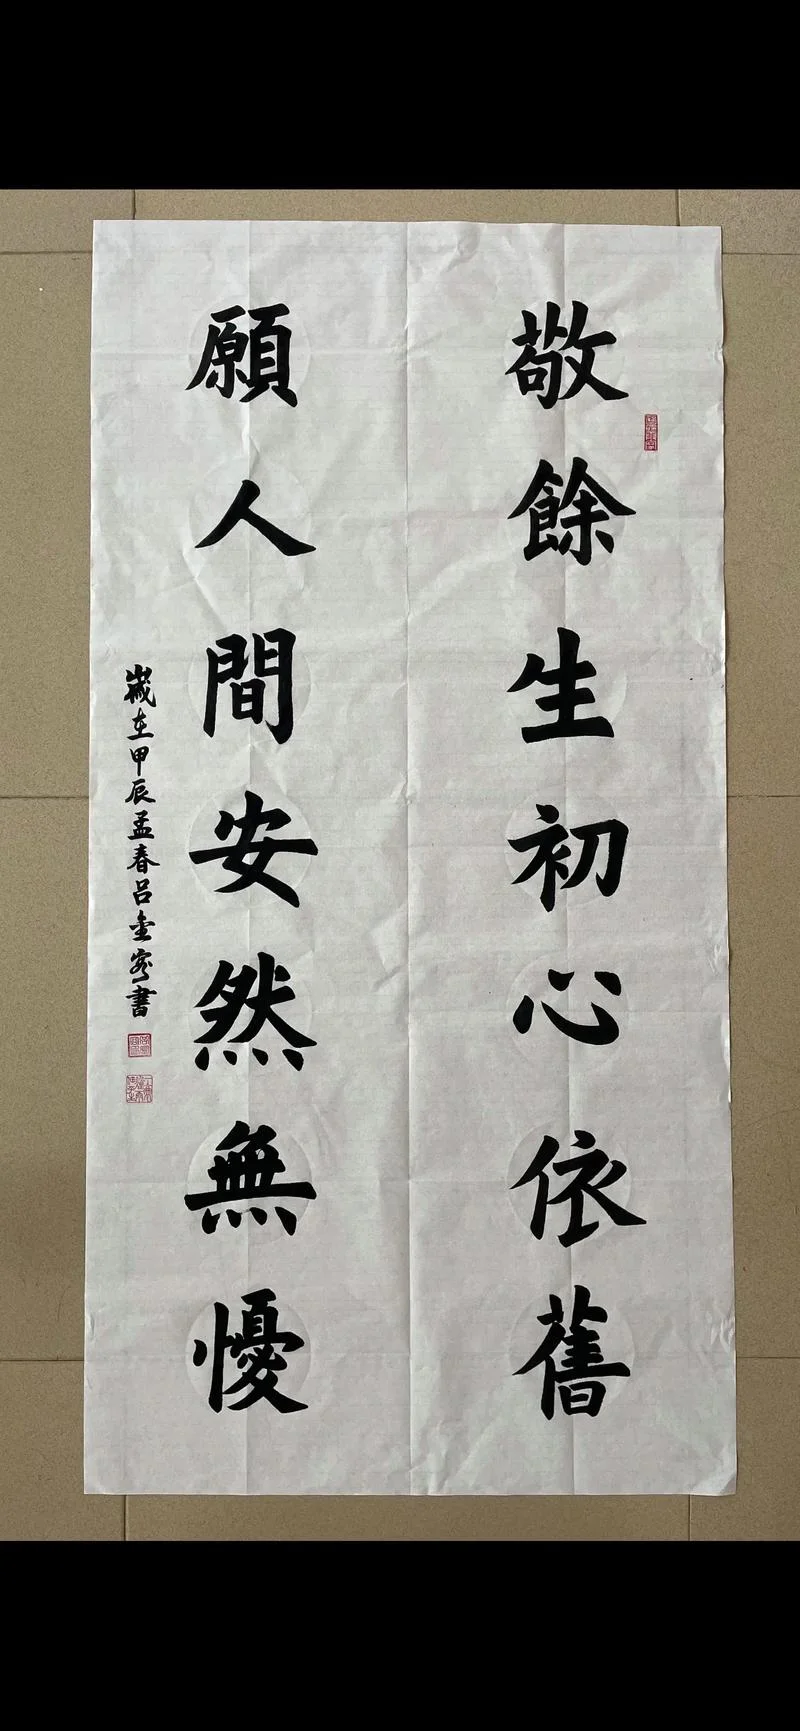 敬餘生初心依舊
願人間安然無憂
歲在甲辰孟春呂金容書